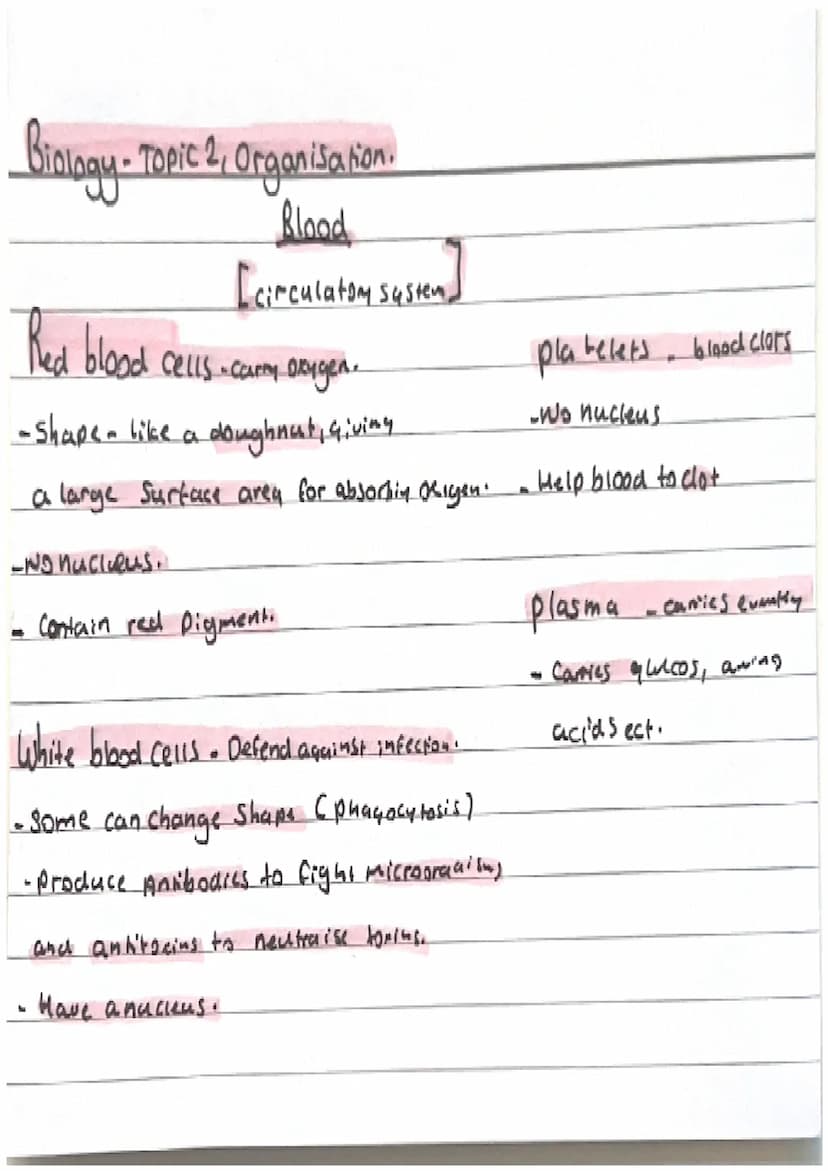 Biology - Topic 2, Organisation.
Blood
[circulatory system]
Red blood cells - carry oxygen.
- Shape - like a doughnut, giving
a large surface area for absorbin oxigen.
- No nucleus.
- Contain red pigment.
White blood cells - Defend against infection.
- Some can change shape (phagocytosis)
- Produce Antibodies to fight
and antitoxins to neutraise toxins.
- Have a nucleus.
platelets - blood clots
- No nucleus
- Help blood to clot
plasma - carries
- Carries glucos, amino
acids ect.